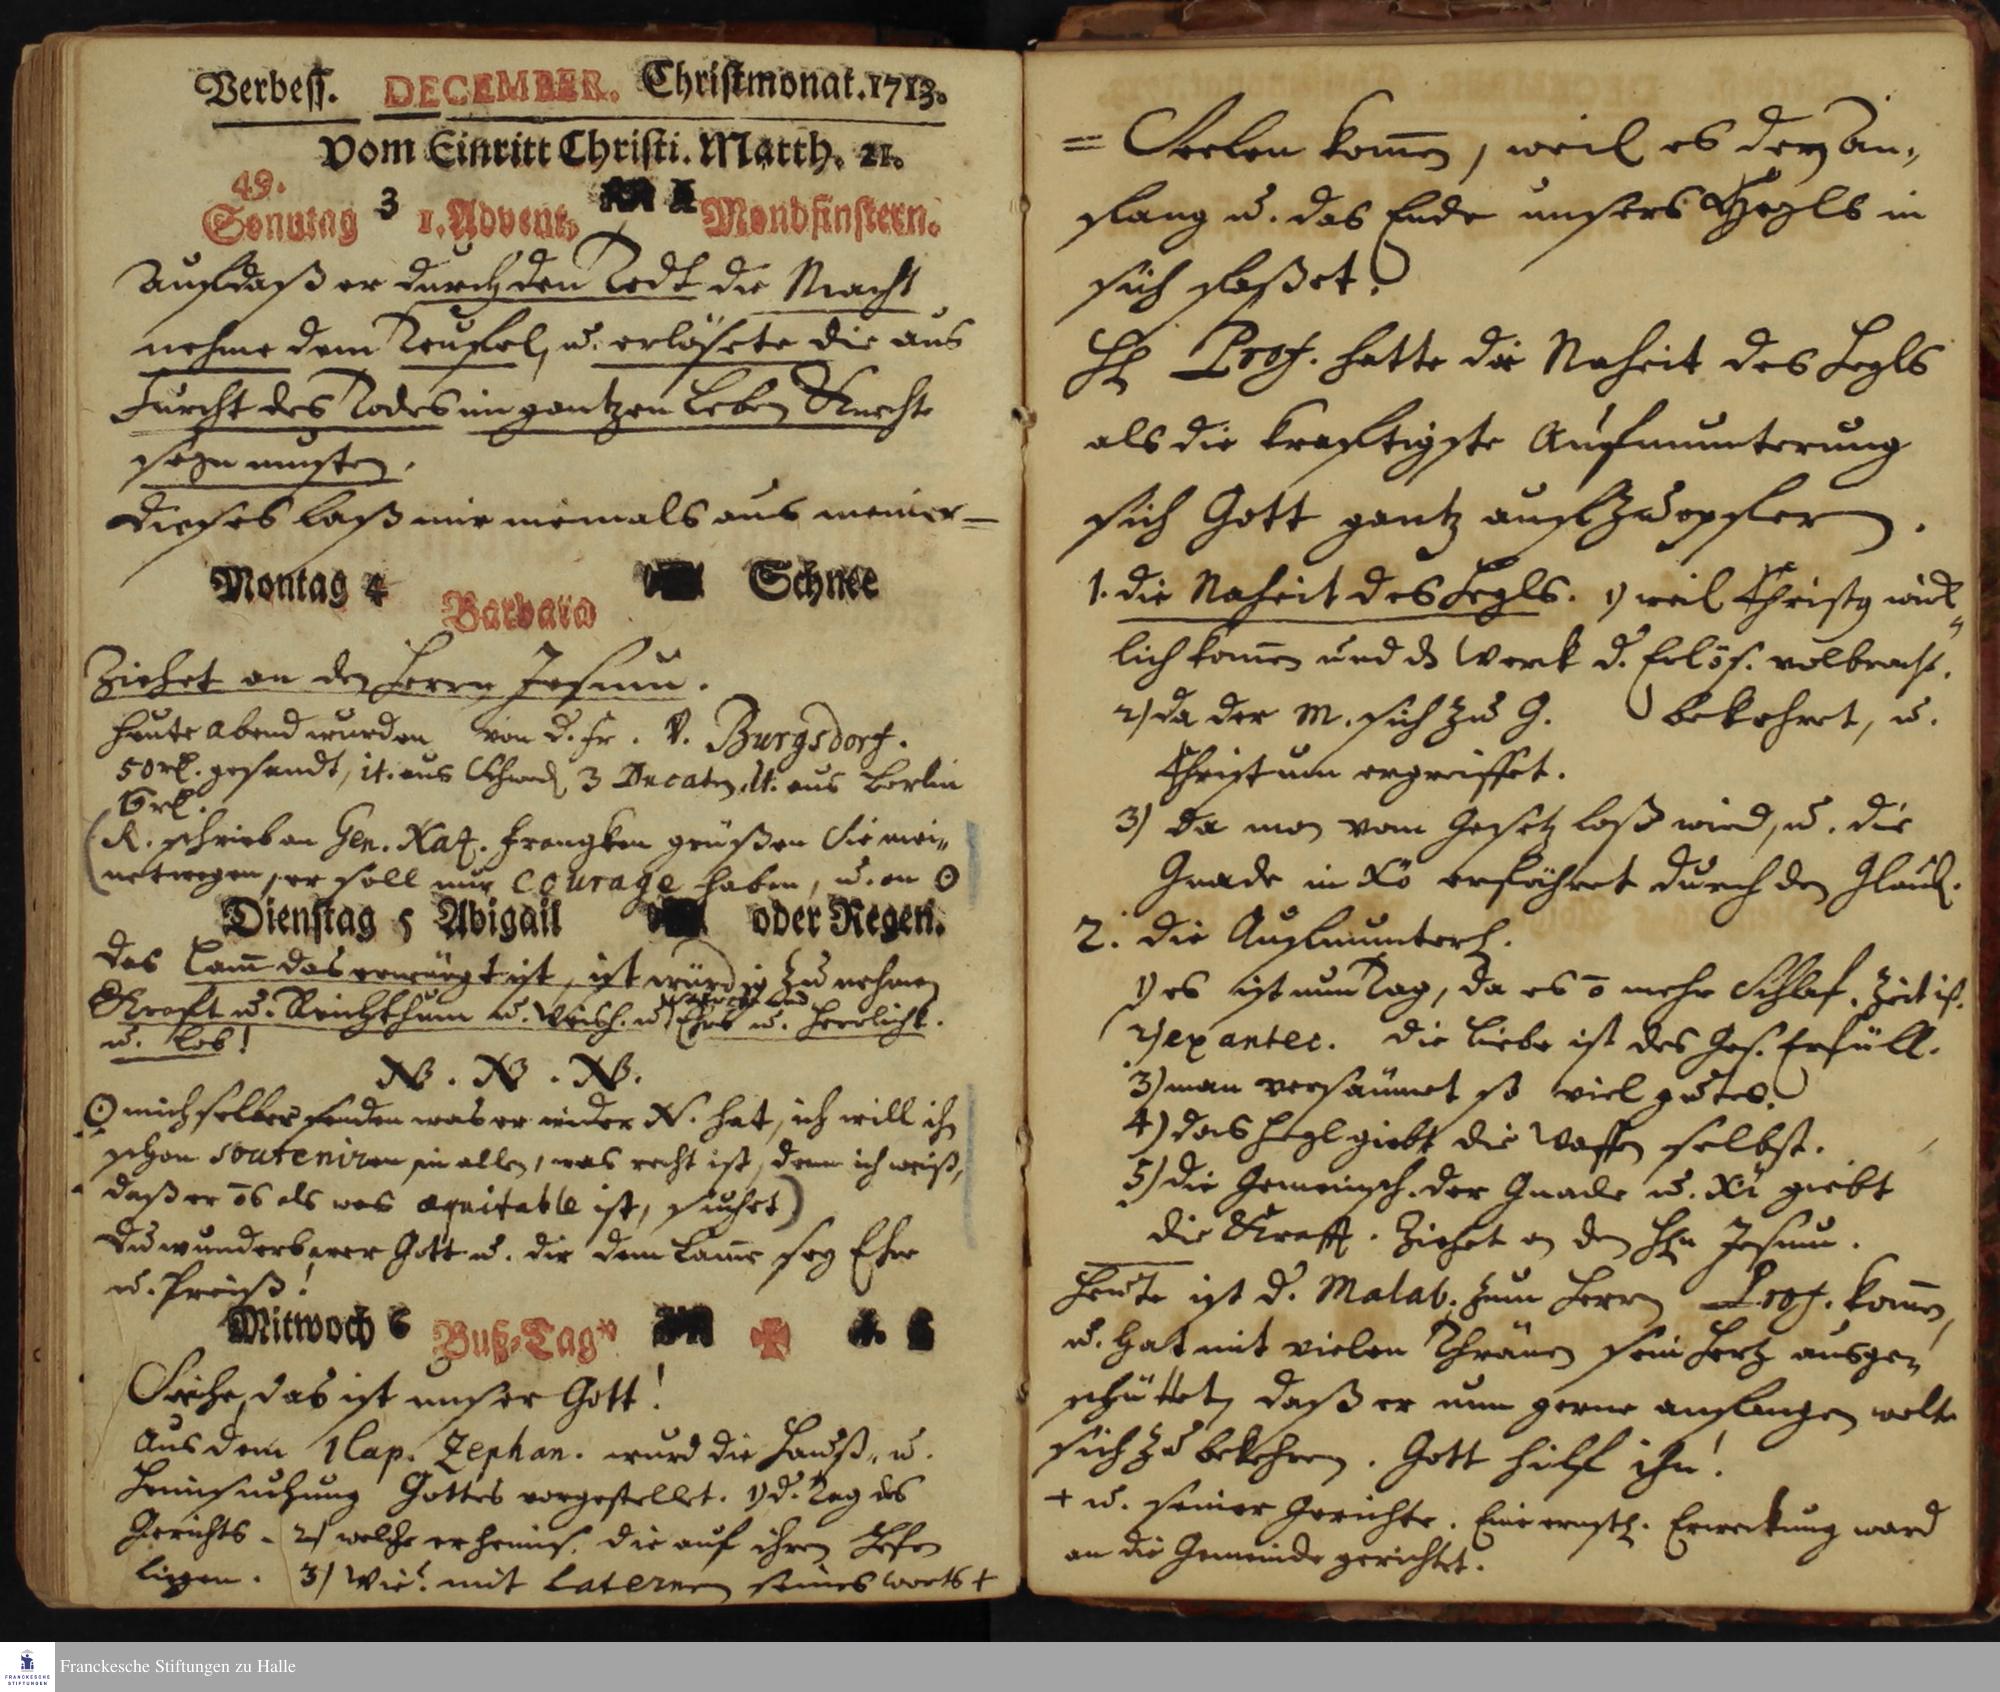 Verbess. DECEMBER. Christmonat. 1713.
Vom Einritt Christi. Matth. 21.
49.
Sonntag 3 1. Advent, Mondfinstern.
Aufdaß er durch den Todt die Macht
nehme dem Teufel, u. erlösete die aus
Furcht des Todes im gantzen Leben Knechte
seyn musten.
Dieses laß mir niemals aus meiner =
Montag 4 Barbara Schnee
Ziehet an den Herrn Jesum.
Heute Abend wurden von d. Fr. v. Burgsdorf.
50 rl. gesandt, it. aus 3 Ducaten, it. aus Berlin
6 rl.
(R. schrieb an Gen. Naz. grüßen Sie mei=
netwegen, er soll nur courage haben, u. an ʘ
Dienstag 5 Abigail oder Regen.
Das Lam̄ das erwürgt ist, ist würdig zu nehmen
Krafft u. Reichthum u. Weish. u. Ehre u. Herrlichk.
u. Lob!
NB. NB. NB.
ʘ mich selber senden was er wider N. hat, ich will ihn
schon souteniren in allen, was recht ist, denn ich weiß,
daß er als was aequitable ist, suchet)
Du wunderbarer Gott u. dir dem Lam̄e sey Ehre
u. Preiß!
Mittwoch 6 Buß-Tag*
Siehe, das ist unser Gott!
Aus dem 1 Cap. Zephan. wurd die Hauß= u.
Heimsuchung Gottes vorgestellet. 1) d. Tag des
Gerichts. 2) welche er heims. die auf ihren Hefen
liegen. 3) Wie? mit Laternen seines Worts +
= Seelen kom̄en, weil es den An=
fang u. das Ende unsers Heyls in
sich faßet.
HE. Prof. hatte die Naheit des Heyls
als die kräftigste Aufmunterung
sich Gott gantz aufzuopfern.
1. die Naheit des Heyls. 1) weil Christus würk=
lich kom̄en und ds Werk d. Erlös. volbracht.
2) da der M. sich zu G. bekehret, u.
Christum ergreiffet.
3) Da man vom Gesetz loß wird, u. die
Gnade in Xo erfähret durch den Glaub.
2. die Aufmunter.
1) es ist nun Tag, da es ō mehr Schlaf. Zeit ist.
2) ex antec. die Liebe ist des Ges. Erfüll.
3) man versäumet so viel gutes.
4) das Heyl giebt die Waffen selbst.
5) die Gemeinsch. der Gnade u. Xi giebt
die Krafft. Ziehet an den HEn Jesum.
Heute ist d. Malab. zum Herrn Prof. kom̄en,
u. hat mit vielen Thränen sein Hertz ausge=
schüttet, daß er nun gerne anfangen wolte
sich zu bekehren. Gott hilf ihm!
+ u. seiner Gerichte. Eine ernstl. Erweckung ward
an die Gemeinde gerichtet.
FRANCKESCHE
STIFTUNGEN
Franckesche Stiftungen zu Halle